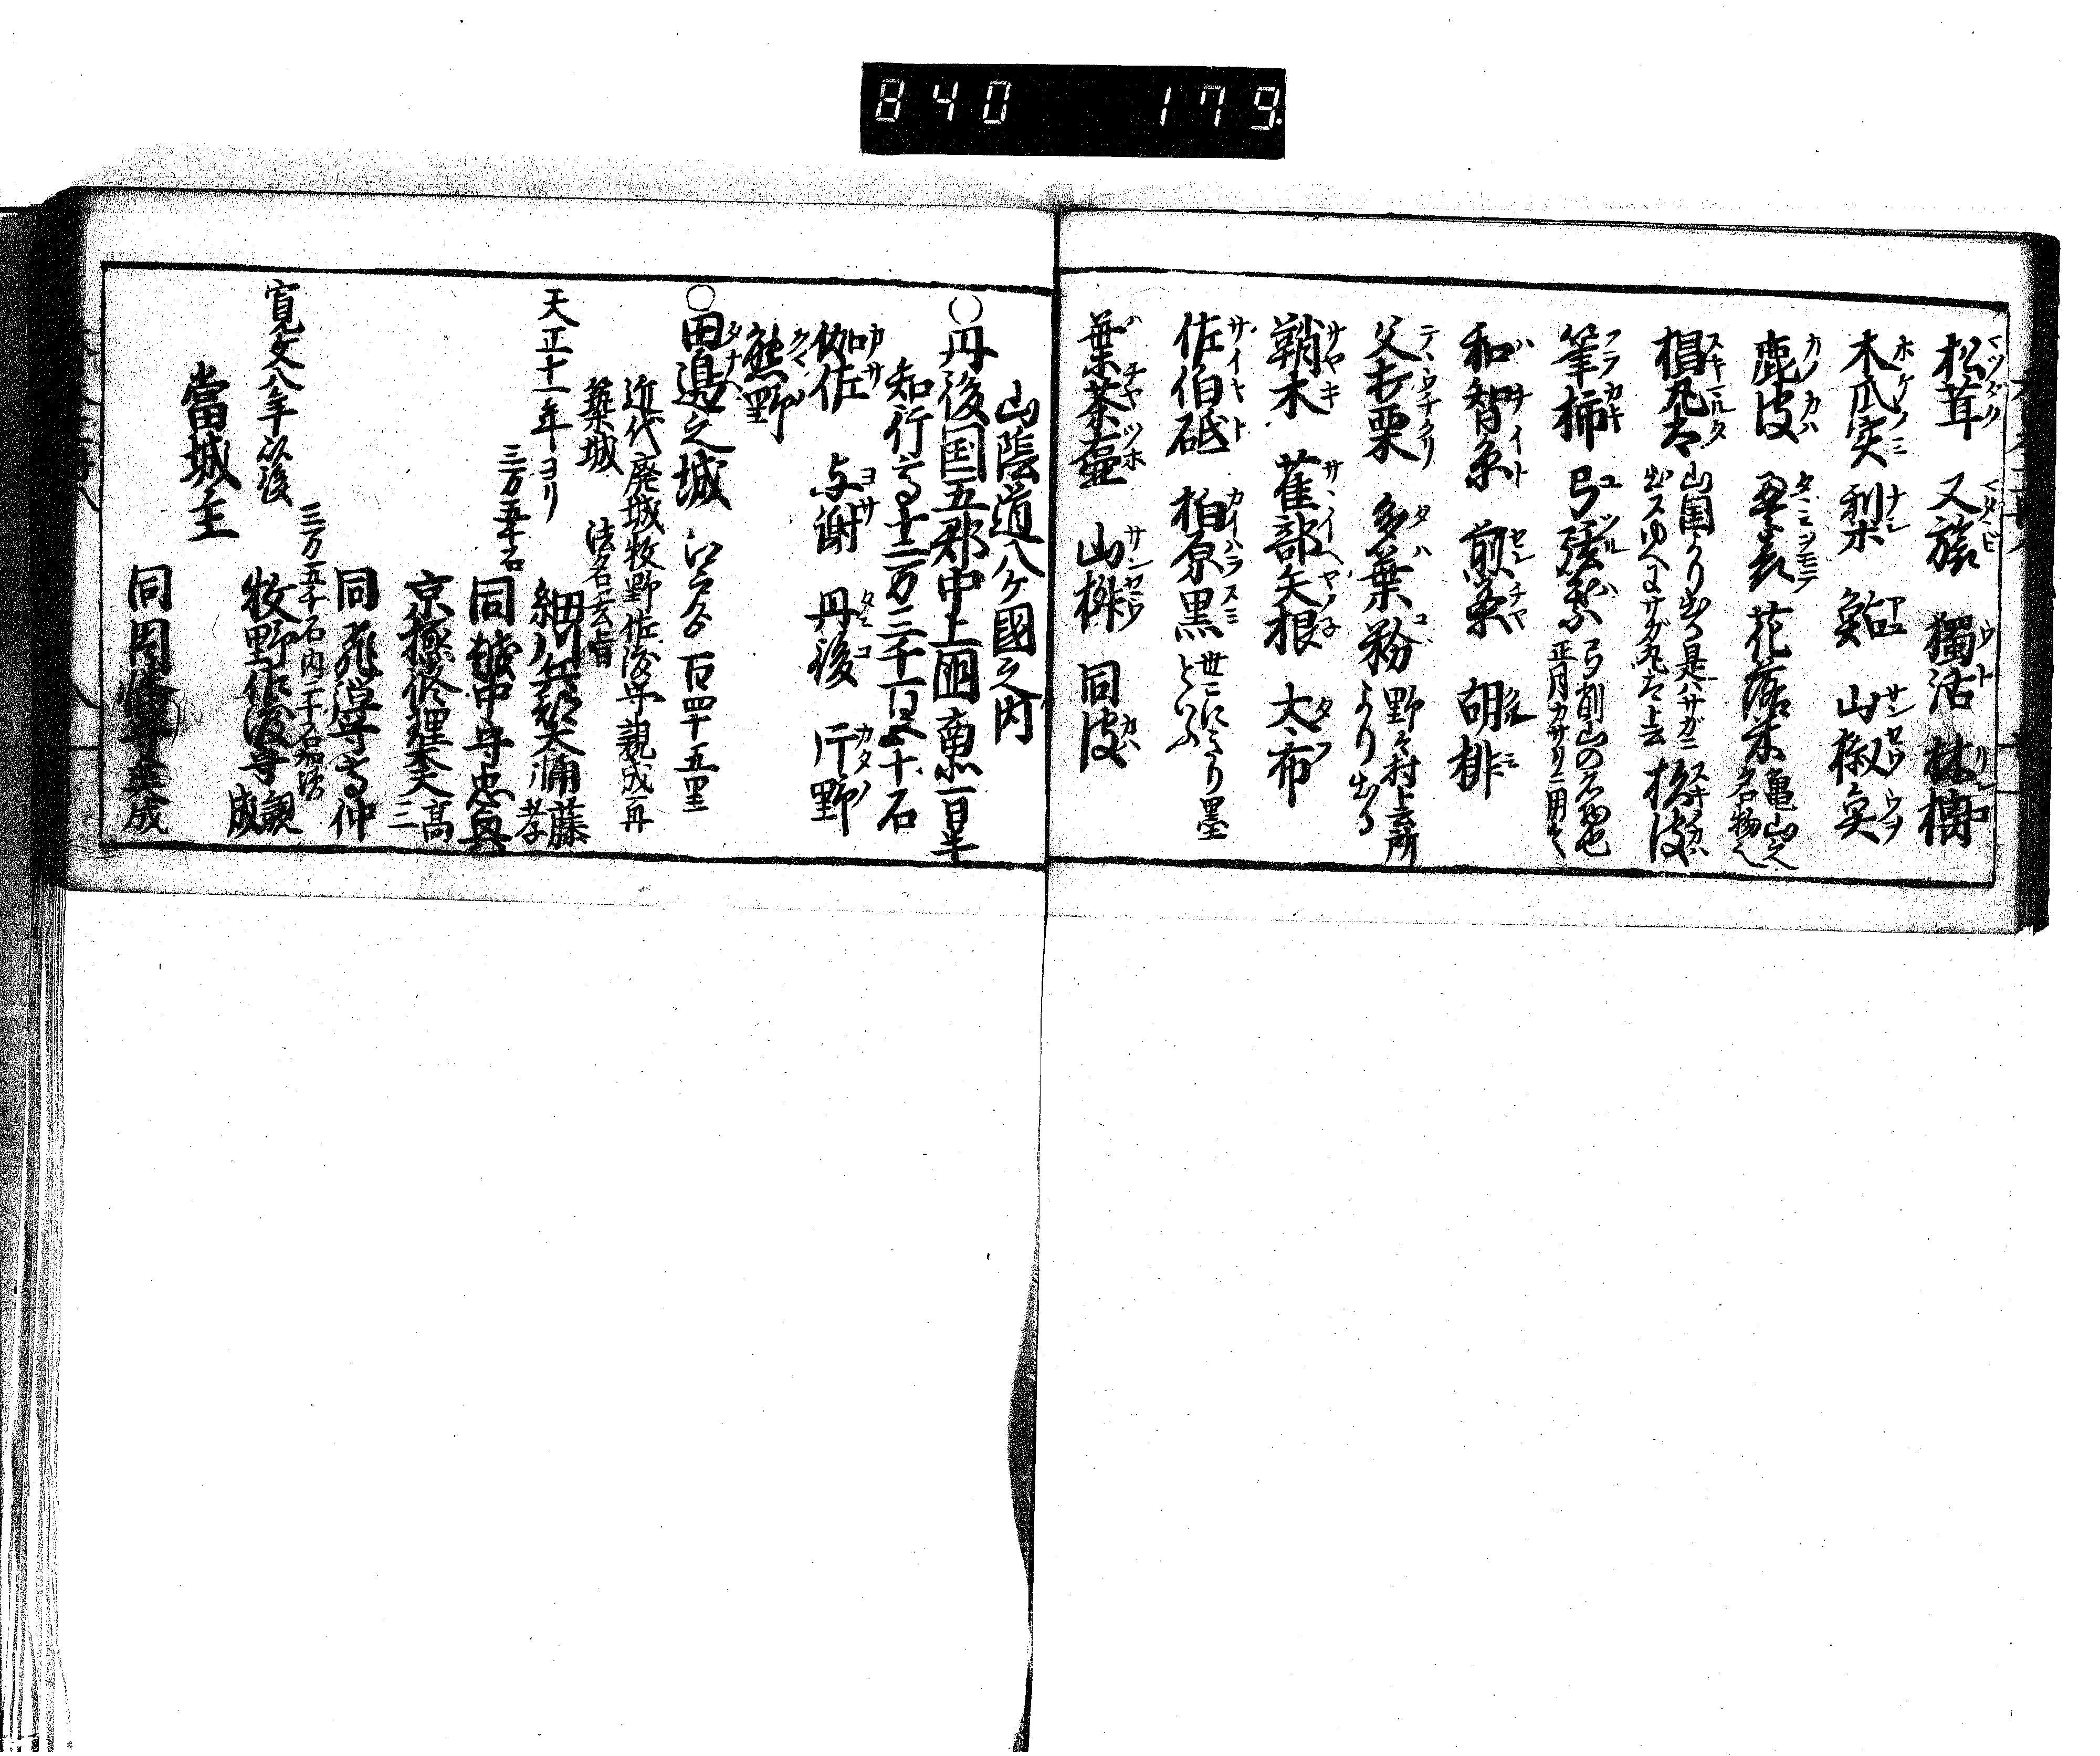 840 179
松茸 又旅 獨活 林檎
木瓜実 梨 鮎 山椒魚
鹿皮 花落木 亀山之名物也
椙丸太 山国より出ル是ハサガニ出スゆへにサガ丸太ト云 椙皮
筆柿 弓弦葉 弓削山の名物也正月カサリニ用之
和智糸 煎茶
父打栗 多葉粉 野々村ト云所より出る
鞘木 雀部矢根 太布
佐伯砥 柏原黒 世にことり墨といふ
葉茶壷 山椒 同皮
山陰道八ケ國之内
〇丹後国五郡中上国
知行高十二万三千百五十石
加佐 与謝 丹後 片野
熊野
〇田邉之城 江戸ゟ 百四十五里
近代廃城牧野佐渡守親成再築城
天正十一年ヨリ 細川兵部太輔藤孝 法名玄旨
三万五千石 同越中守忠興
京極修理太夫高三
同飛弾守高仲
寛文八年以後 三万五千石内二千石 牧野佐渡守親成
當城主
同因幡守英成